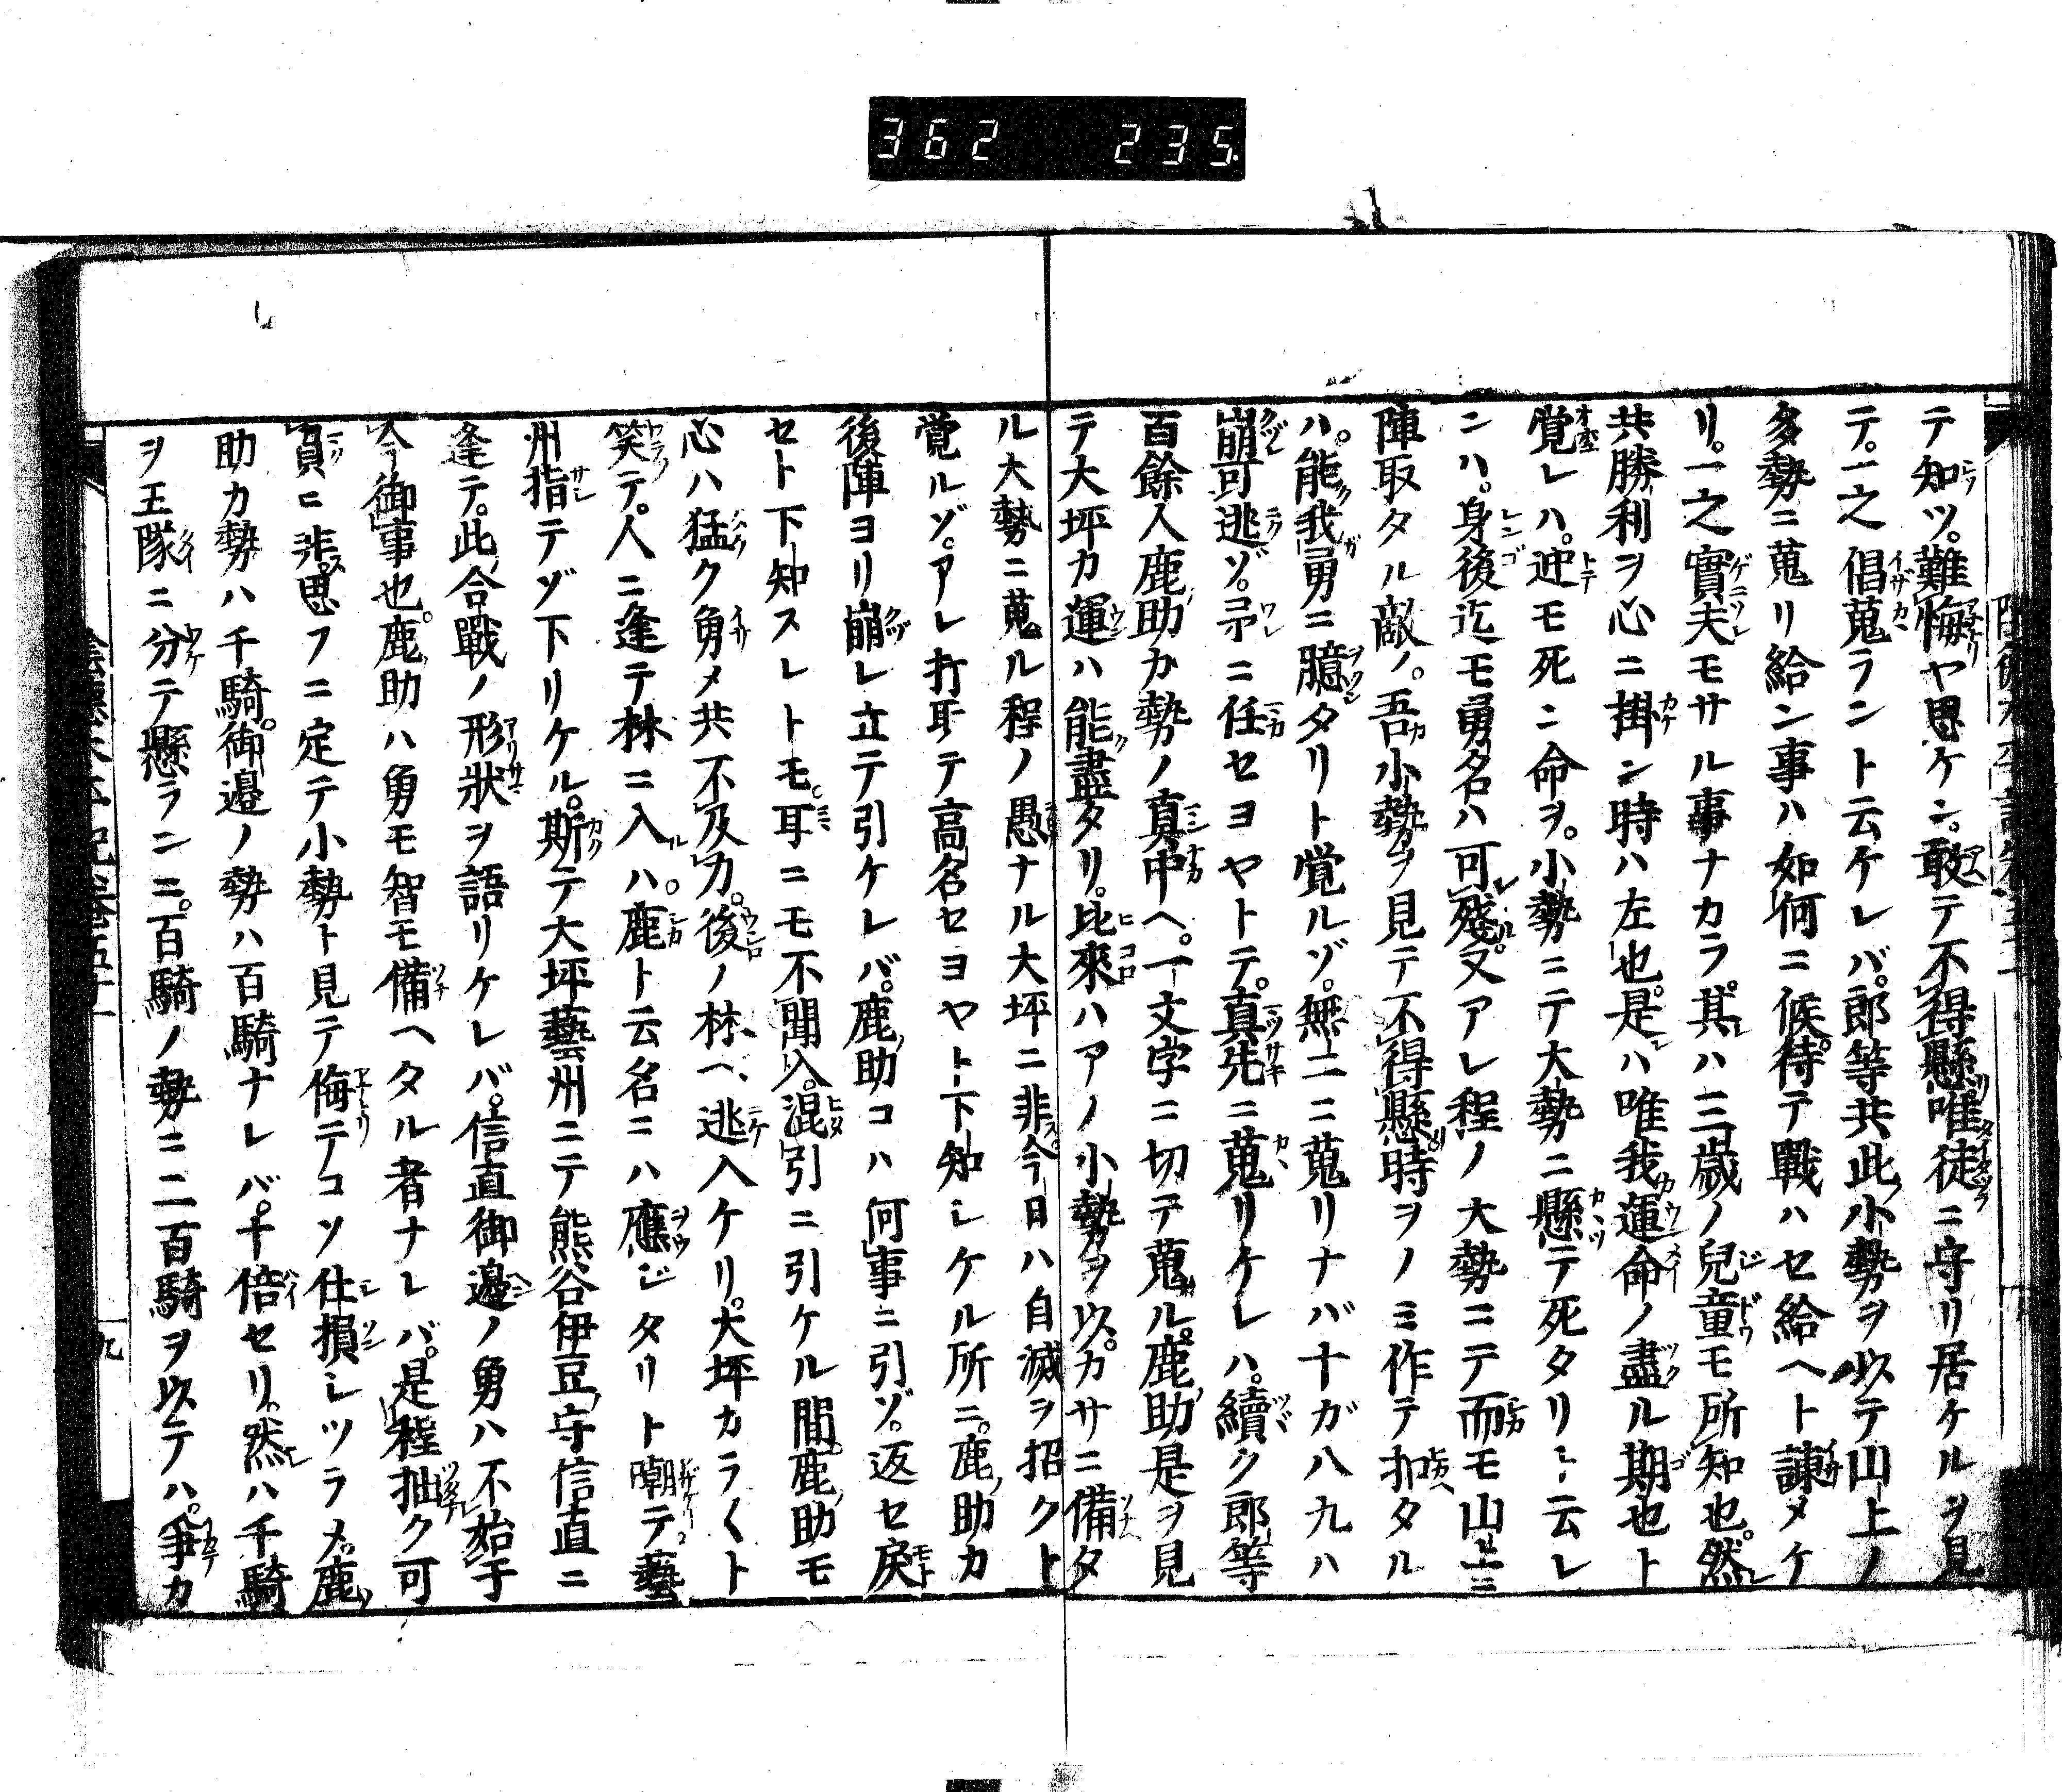 362 235
テ知ツ。難侮ヤ思ケン。敢テ不得懸唯徒ニ守リ居ケルヲ見
テ。一之倡蒐ラント云ケレバ。郎等共此小勢ヲ以テ山上ノ
多勢ニ蒐リ給ン事ハ如何ニ候。待テ戰ハセ給ヘト諌メケ
リ。一之實夫モサル事ナカラ。其ハ三歳ノ兒童モ所知也。然
共勝利ヲ心ニ掛ン時ハ左也。是ハ唯我運命ノ盡ル期也ト
覚レハ。迚モ死ニ命ヲ。小勢ニテ大勢ニ懸テ死タリト云レ
ンハ。身後迄モ勇名ハ可殘。又アレ程ノ大勢ニテ而モ山上ニ
陣取タル敵ノ。吾小勢ヲ見テ不得懸時ヲノミ作テ扣タル
ハ。能我勇ニ臆タリト覚ルゾ。無二ニ蒐リナバ十ガ八九ハ
崩可逃ゾ。予ニ任セヨヤトテ。真先ニ蒐リケレハ。續ク郎等
百餘人鹿助カ勢ノ真中ヘ。一文字ニ切テ蒐ル。鹿助是ヲ見
テ大坪カ運ハ能盡タリ。比來ハアノ小勢ヲ以。カサニ備タ
ル大勢ニ蒐ル程ノ愚ナル大坪ニ非。今日ハ自滅ヲ招クト
覚ルゾ。アレ打取テ高名セヨヤト下知シケル所ニ。鹿助カ
後陣ヨリ崩レ立テ引ケレバ。鹿助コハ何事ニ引ゾ。返セ戻
セト下知スレトモ。耳ニモ不聞入。混引ニ引ケル間。鹿助モ
心ハ猛ク勇メ共不及力。後ノ林ヘ逃入ケリ。大坪カラ〱ト
笑テ。人ニ逢テ林ニ入ハ。鹿ト云名ニハ應ジタリト嘲テ。藝
州指テゾ下リケル。斯テ大坪藝州ニテ熊谷伊豆守信直ニ
逢テ。此合戰ノ形狀ヲ語リケレバ。信直御邊ノ勇ハ不始于
今御事也。鹿助ハ勇モ智モ備ヘタル者ナレバ。是程拙ク可
負ニ非。思フニ定テ小勢ト見テ侮テコソ仕損シツラメ。鹿
助カ勢ハ千騎。御邊ノ勢ハ百騎ナレバ。十倍セリ。然ハ千騎
ヲ五隊ニ分テ懸ランニ。百騎ノ勢ニ二百騎ヲ以テハ。爭カ
九